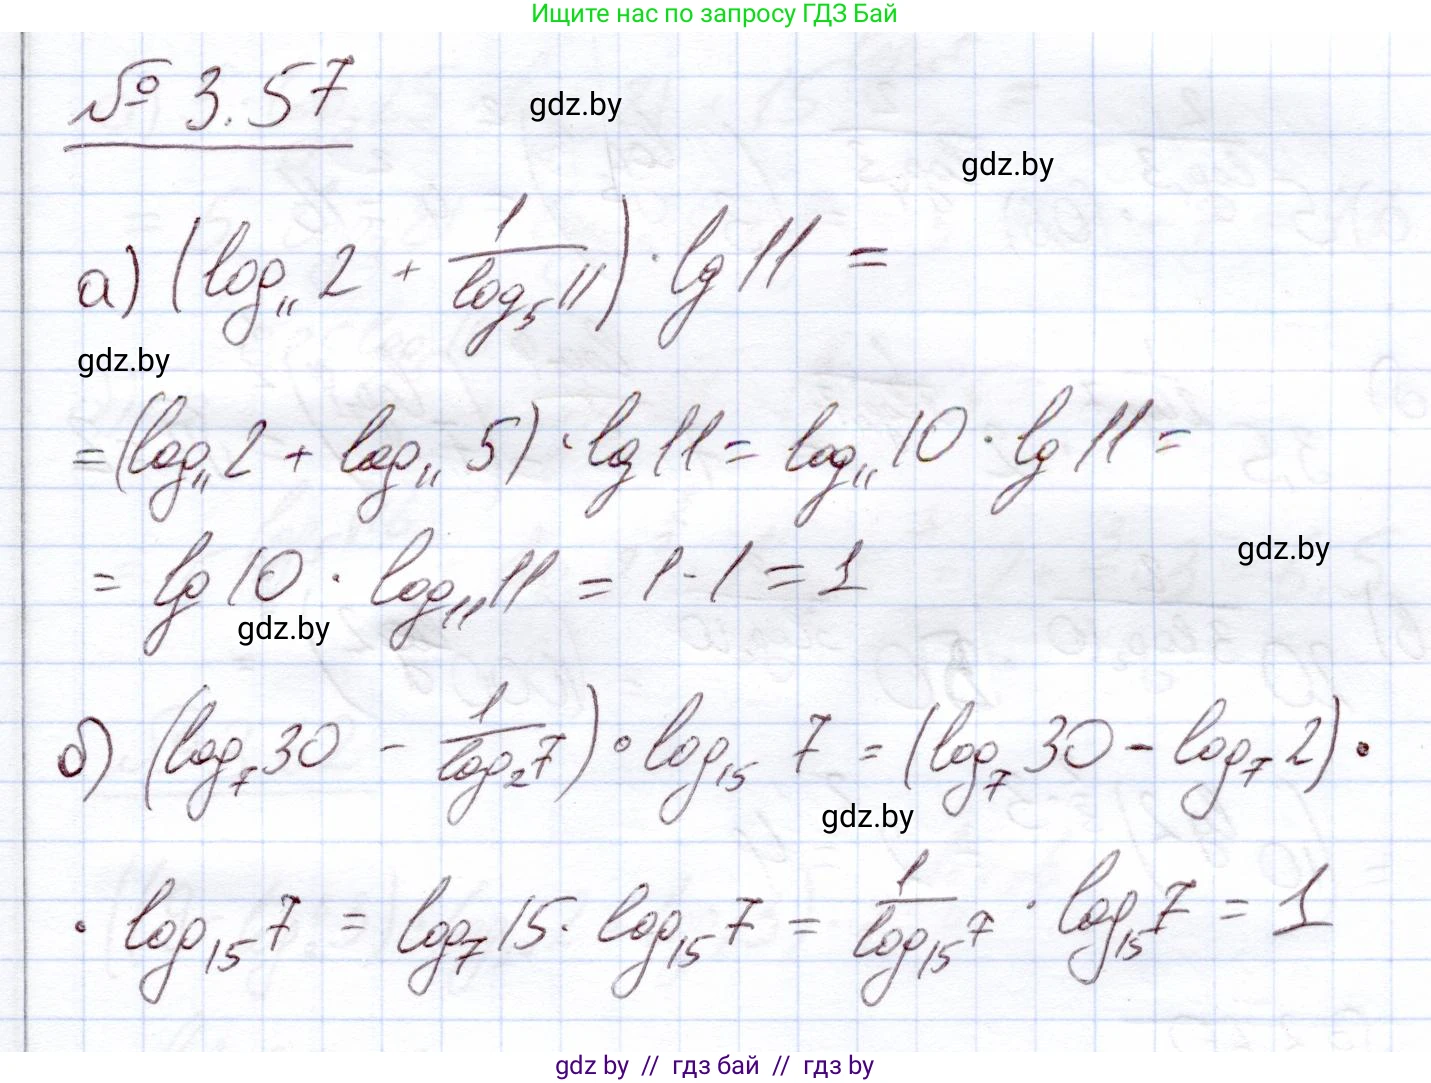 Ищите нас по запросу ГДЗ Бай
№ 3.57
gdz.by
gdz.by
а) (log₁₁ 2 + 1/log₅ 11) · lg 11 =
gdz.by
= (log₁₁ 2 + log₁₁ 5) · lg 11 = log₁₁ 10 · lg 11 =
gdz.by
= lg 10 · log₁₁ 11 = 1 · 1 = 1
gdz.by
б) (log₇ 30 - 1/log₂ 7) · log₁₅ 7 = (log₇ 30 - log₇ 2) ·
gdz.by
· log₁₅ 7 = log₇ 15 · log₁₅ 7 = 1/log₁₅ 7 · log₁₅ 7 = 1
gdz by // гдз бай // гдз by